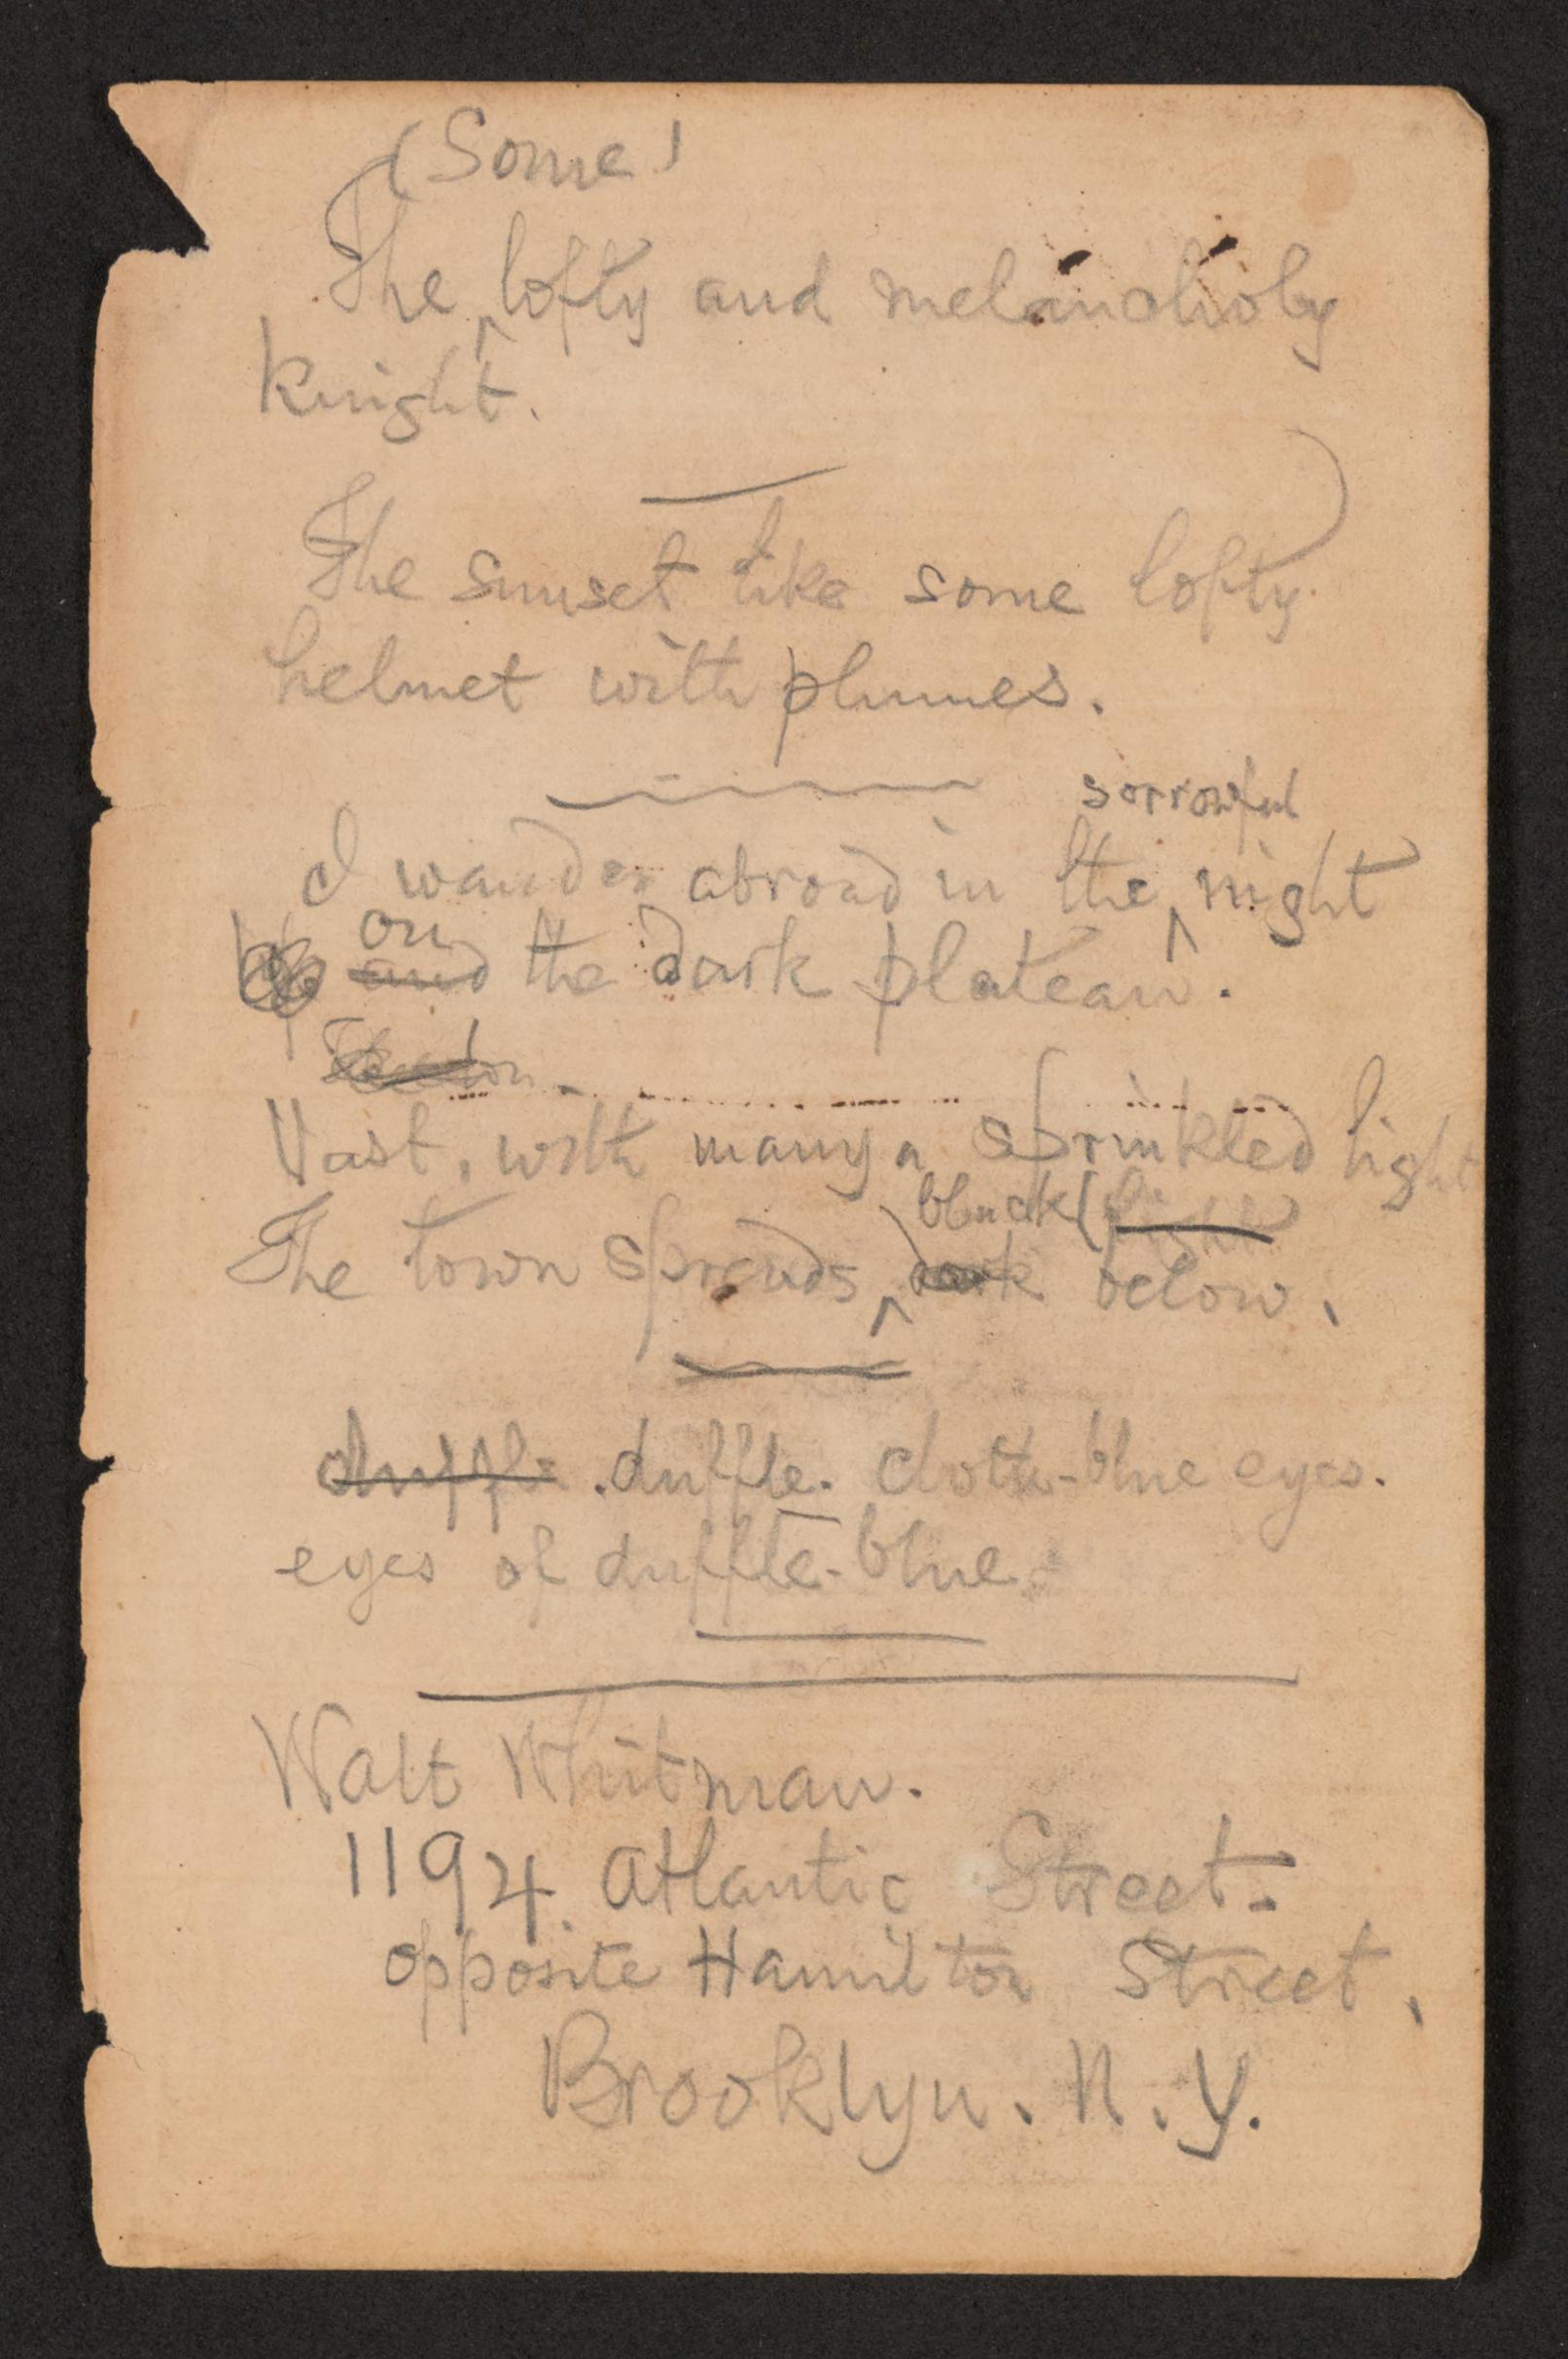 (Some)
The lofty and melancholy
Knight.
The sunset like some lofty
helmet with plumes.
sorrowful
I wander abroad in the night
on
Up and the dark plateau.
Vast, with many a sprinkled light
black (
The town spreads, dark below.
duffle .duffle. cloth-blue eyes.
eyes of duffle-blue.
Walt Whitman.
1194 Atlantic Street.
opposite Hamilton Street,
Brooklyn. N. Y.